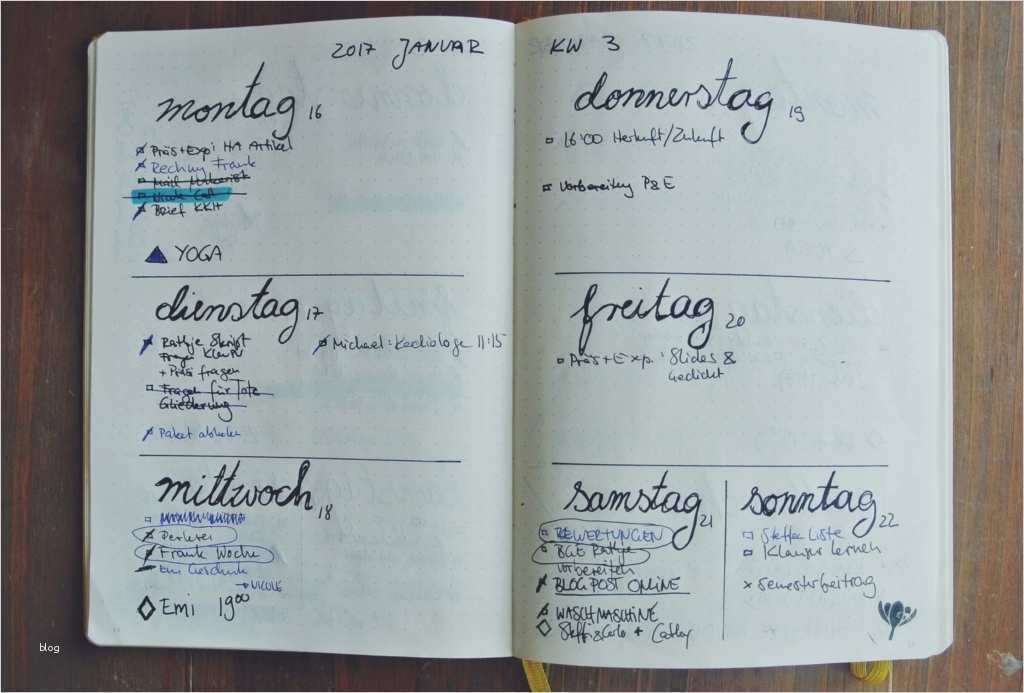 2017 JANUAR
montag 16
Präs+Exp: HA Artikel
Rechnung Frank
Mail
Brief KKH
YOGA
dienstag 17
Rathje Skript
Fragen Klausur
+ Präs fragen
Fragen für Tote
Gliederung
Paket abholen
Michael: Kardiologe 11:15
mittwoch 18
Perlerei
Frank Woche
Emi Geschenk
→ NICOLE
Emi 19⁰⁰
KW 3
donnerstag 19
16:00 Herkunft/Zukunft
Vorbereitung P&E
freitag 20
Präs+Exp.: Slides &
Gedicht
samstag 21
BEWERTUNGEN
BGE Rathje
vorbereiten
BLOGPOST ONLINE
WASCHMASCHINE
Steffi & Carlo + Cathy
sonntag 22
Steffen Liste
Klausur lernen
× Semesterbeitrag
blog